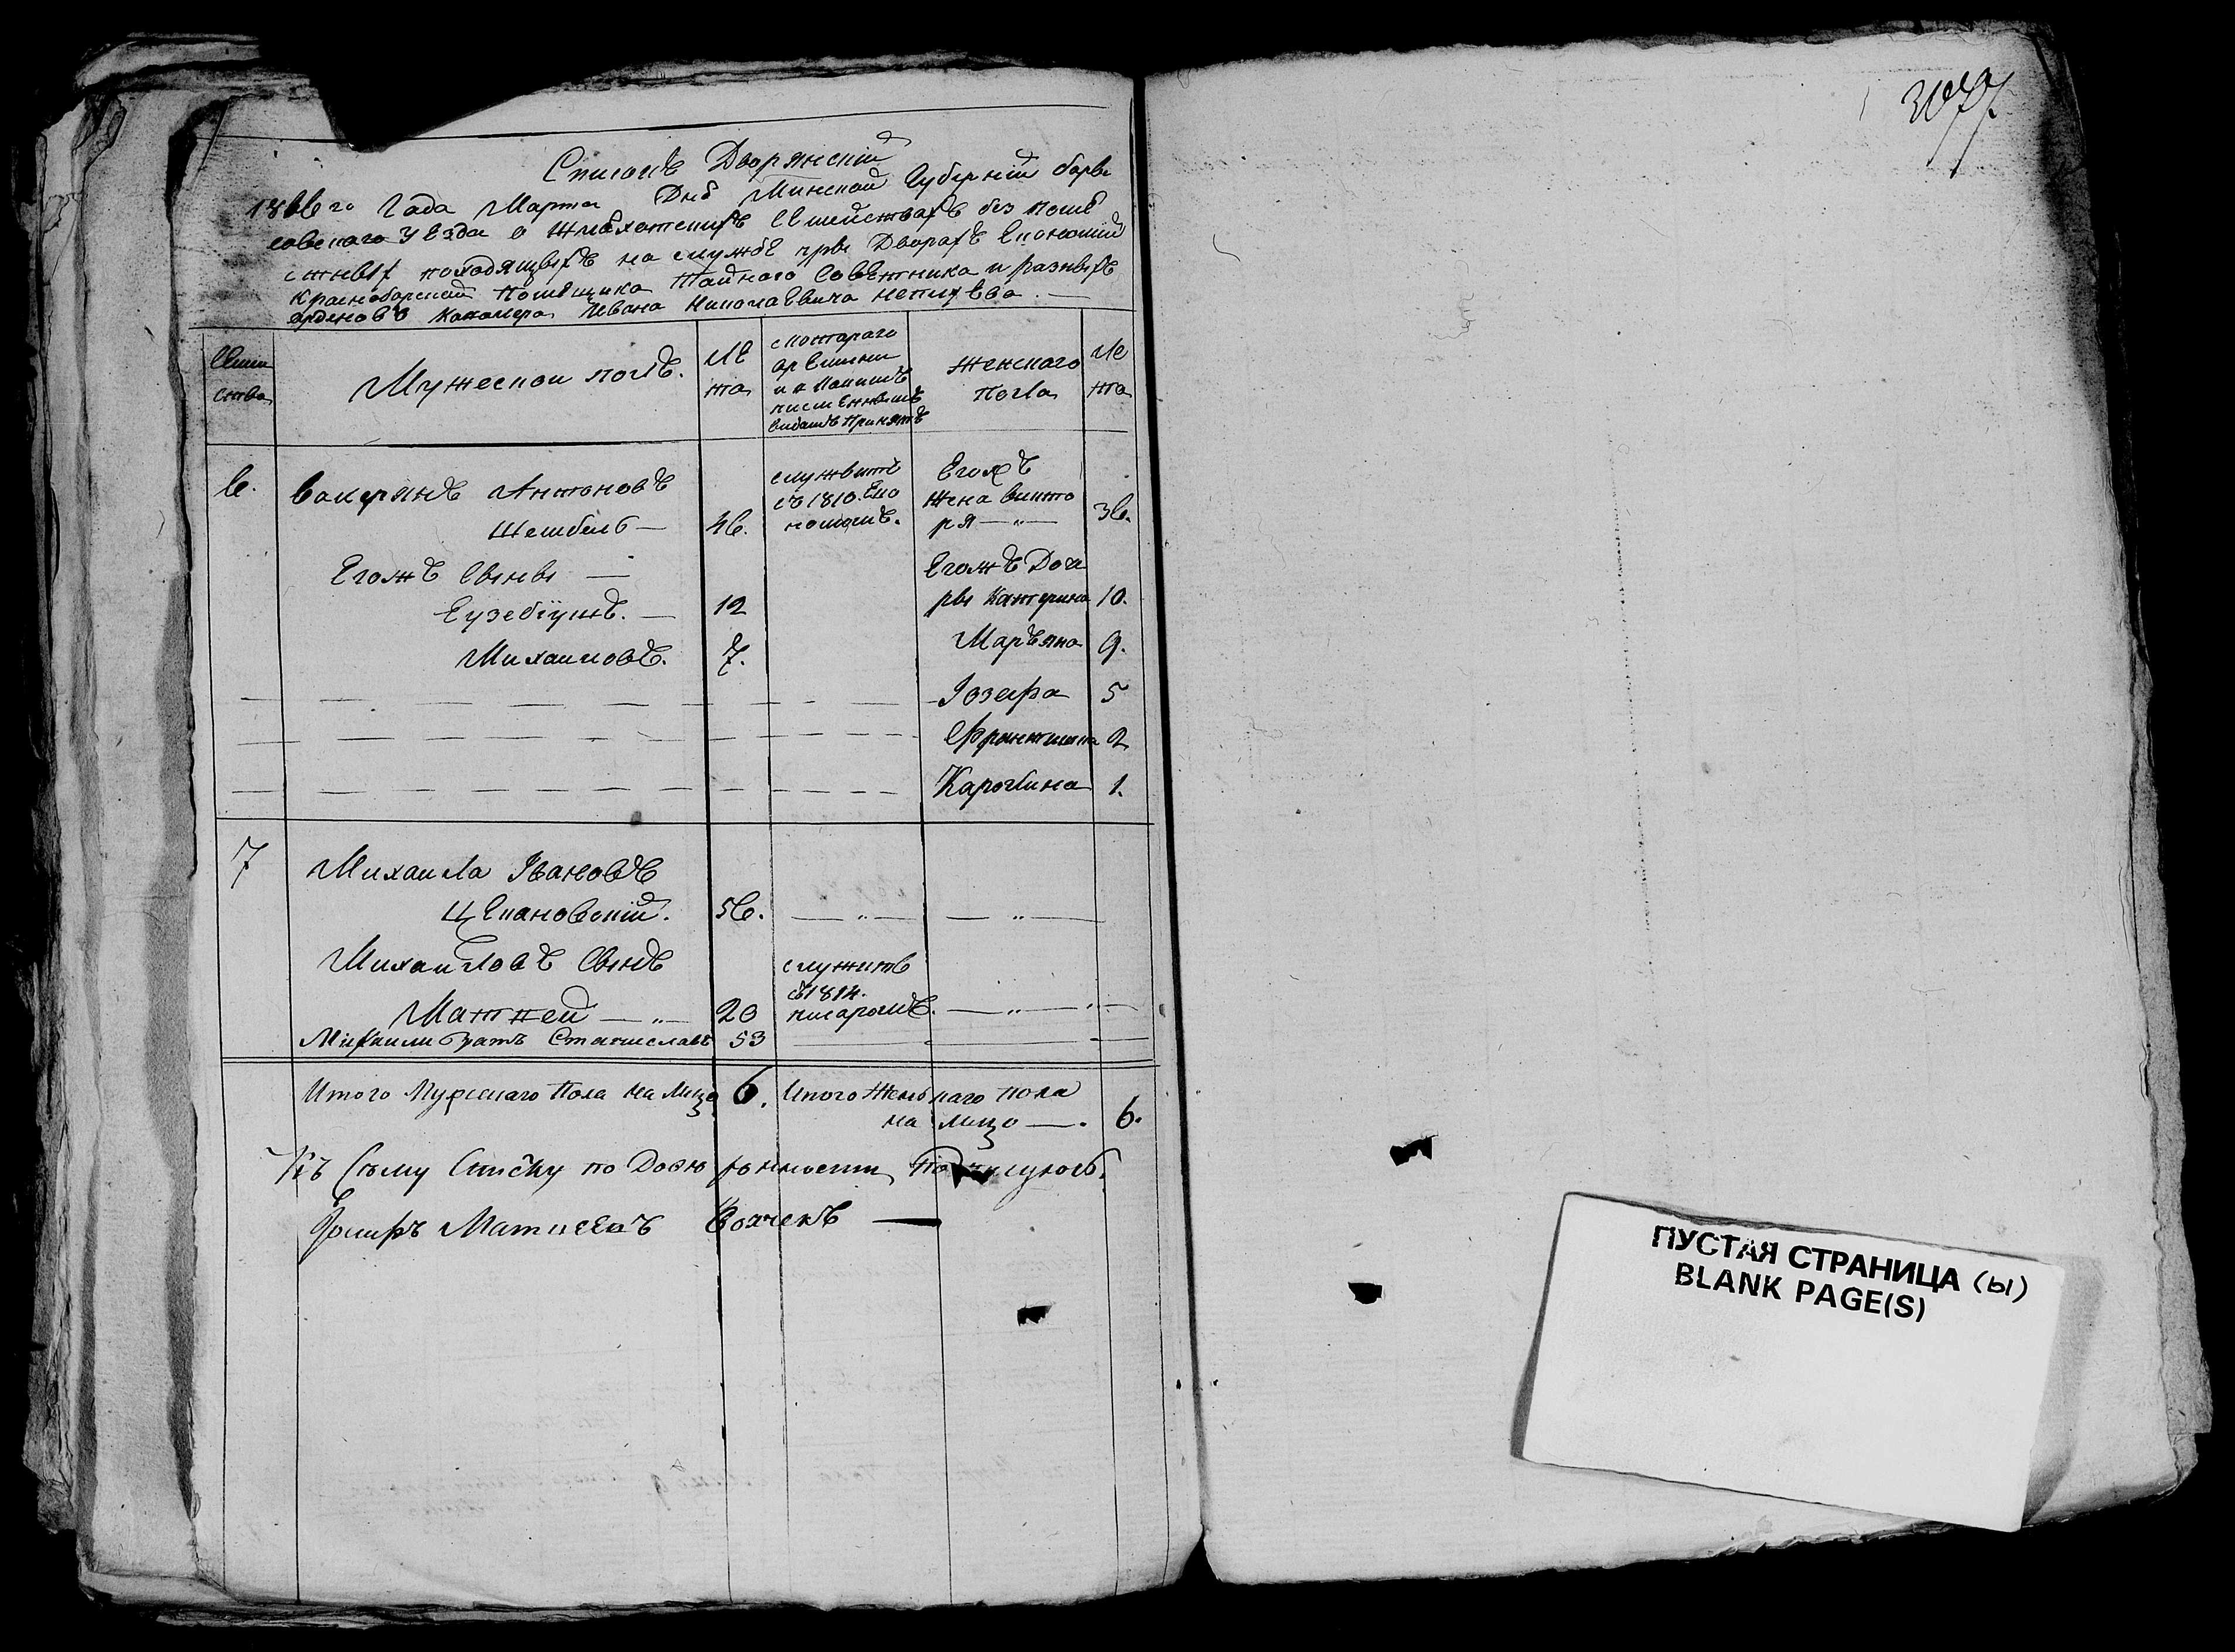 Списокъ Дворянскій
1816го Года Марта Дня Минской Губерніи Боры
совскаго уезда о шляхетскихъ Семействахъ без поме
стныхъ находящыхъ на службе пры Дворахъ Економіи
Красноборской помещика Тайнаго Советника и разныхъ
орденовъ Кавалера Ивана Николаевича Неплуева. —
Семи
ства
Мужескои полъ.
Ле
та
с котораго
времени
и какимъ
писменнымъ
видамъ принятъ
Женскаго
пола
Ле
та
6.
Антоновъ
46.
служытъ
съ 1810. Еко
номомъ.
Егожъ
жена Викто
ря — „ —
36.
Егожъ Сыны —
Егожъ Доче
ры Катерина 10.
Еузебіушъ. — 12
Михаиловъ. 7.
Маръяна 9.
Іозефа 5
Францишка 2
Каролина 1.
7
Михаила Івановъ
Цехановскій. 56. — „ — — „ —
Михаиловъ Сынъ
Матней — „ — 20
служитъ
съ 1814.
писаромъ. — „ —
Михаили братъ Станиславъ 53
Итого Мужескаго пола на лицо 6. Итого Женскаго пола
на лицо — . 6.
Къ Сему Списку по Доверенности Подписуюсь
Матисевъ Волчекъ —
ПУСТАЯ СТРАНИЦА (Ы)
BLANK PAGE(S)